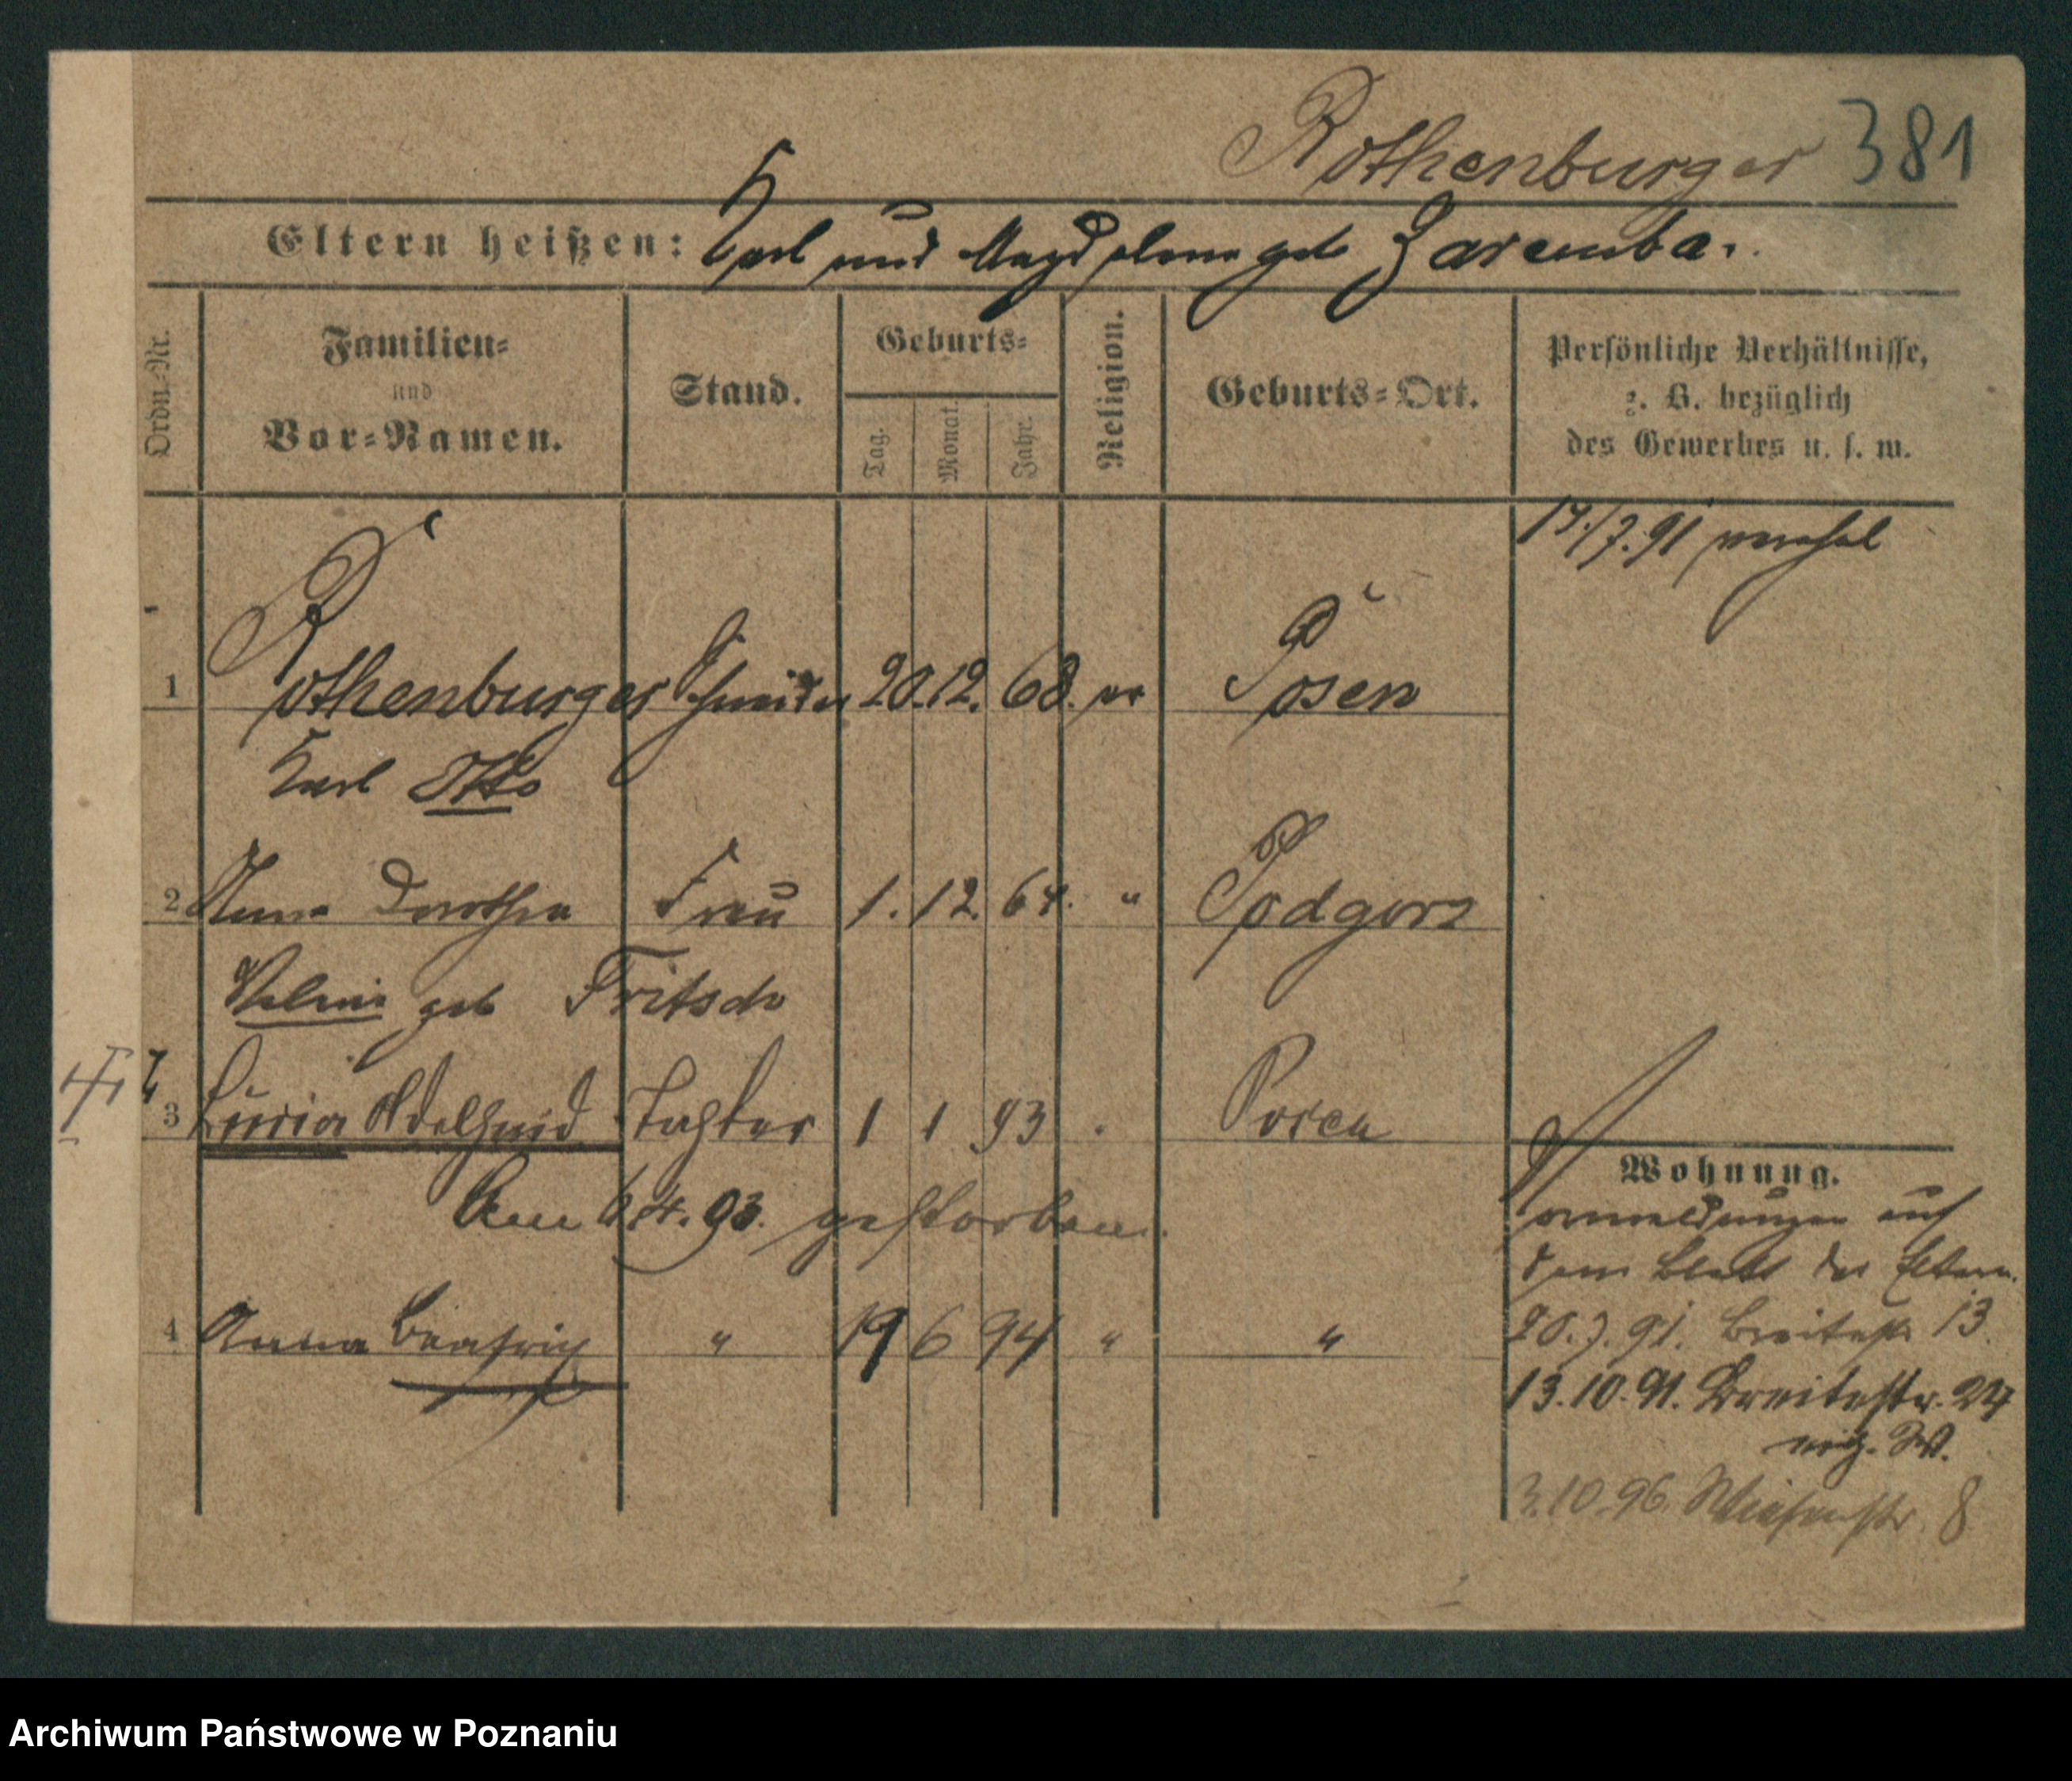 Rothenburger 381
Eltern heißen: Karl und Magdalena geb Zaremba.
Ordn.-Nr.
Familien-
und
Vor-Namen.
Stand.
Geburts-
Tag.
Monat.
Jahr.
Religion.
Geburts-Ort.
Persönliche Verhältnisse,
z. B. bezüglich
des Gewerbes u. s. w.
17./7.91
1 Rothenburger Schneider 20. 12. 68. ev Posen
Karl Otto
2 Anna Dorothea Frau 1. 12. 64. " Podgorz
geb Fritsch
3 Adelheid Tochter 1 1 93 Posen
Am 6.4.93. gestorben.
4 Anna " 19 6 94 " "
Wohnung.
auf
dem Blatt der Eltern.
20.7.91. Breitestr 13.
13.10.91. Breitestr. 24
3.10.96. Wiesenstr. 8
Archiwum Państwowe w Poznaniu